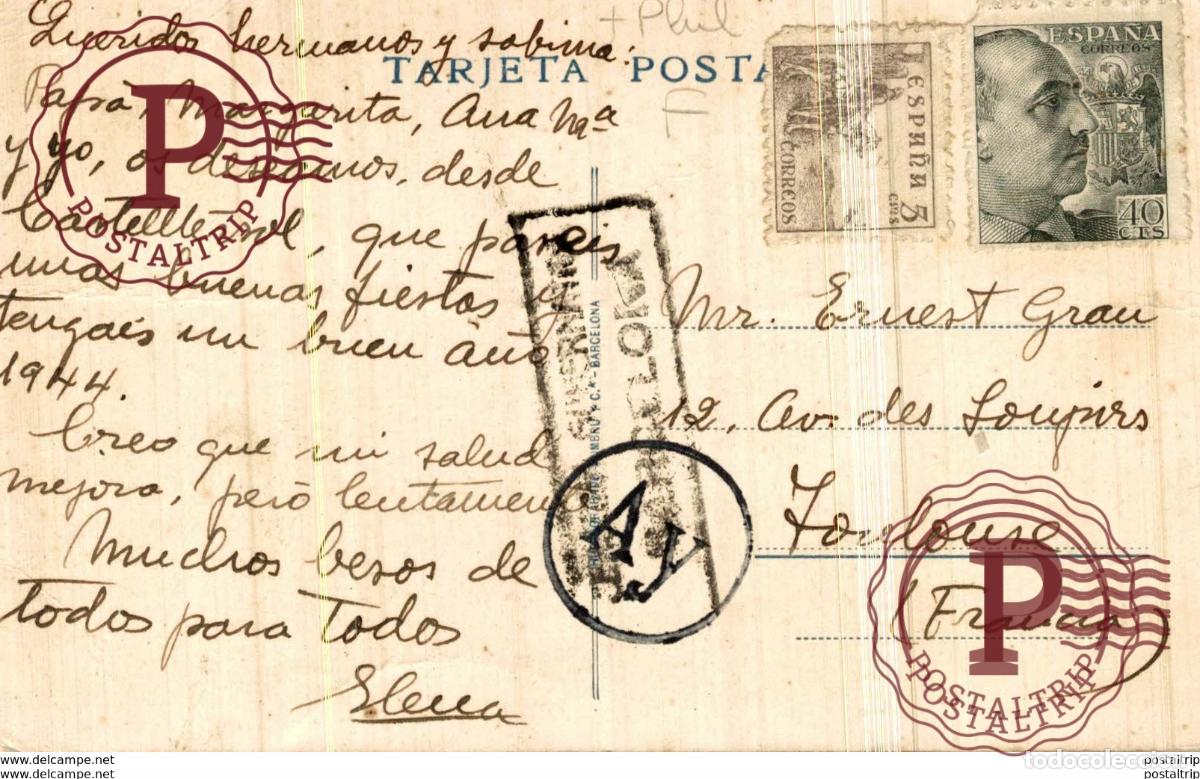 Queridos hermanos y sobrina:
Papa, Margarita, Ana Mª
y yo, os deseamos, desde
que paseis
unas buenas fiestas y
tengais un buen año
1944.
Creo que mi salud
mejora, pero lentamente
Muchos besos de
todos para todos
Elena
+ Phil
F
TARJETA POSTA
CORREOS
ESPAÑA
5
CTS
ESPAÑA
CORREOS
40
CTS
BARCELONA
Ay
Mr. Ernest Grau
12, Av. des Soupirs
Toulouse
(Francia)
P
POSTALTRIP
P
POSTALTRIP
POSTALTRIP
www.delcampe.net
www.delcampe.net
todocoleccion
postaltrip
postaltrip